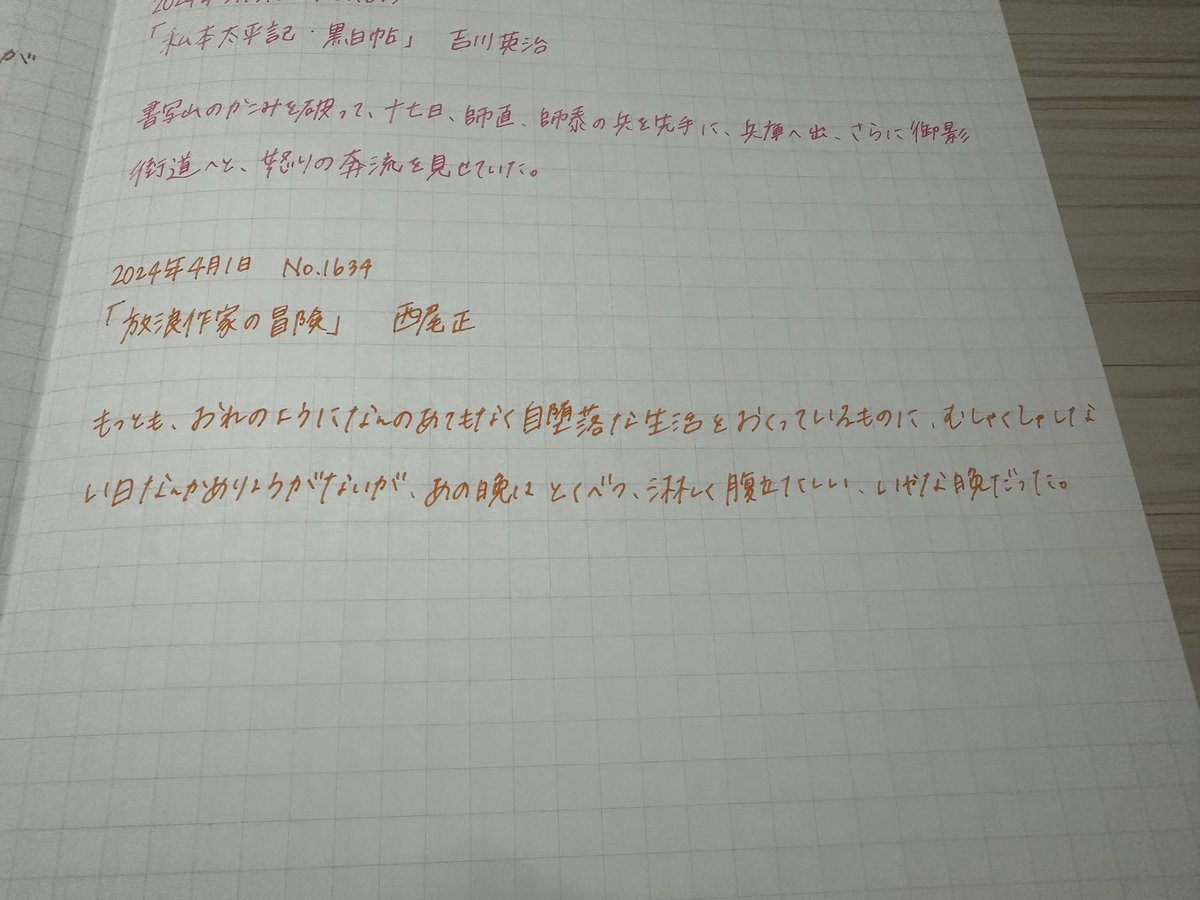 「私本太平記・黒白帖」 吉川英治
書写山のかこみを破って、十七日、師直、師泰の兵を先手に、兵庫へ出、さらに御影
街道へと、怒りの奔流を見せていた。
2024年4月1日 No.1634
「放浪作家の冒険」 西尾正
もっとも、おれのようになんのあてもなく自堕落な生活をおくっているものに、むしゃくしゃしな
い日なんかありようがないが、あの晩はとくべつ、淋しく腹立たしい、いやな晩だった。
が